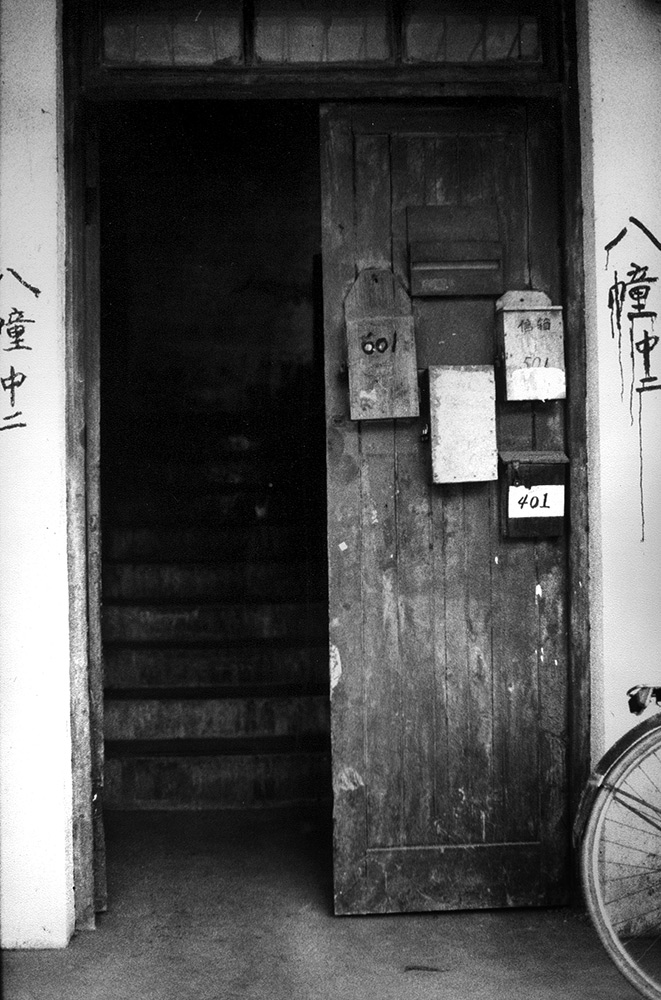 八
幢
中
二
601
信箱
501
401
八
幢
中
二